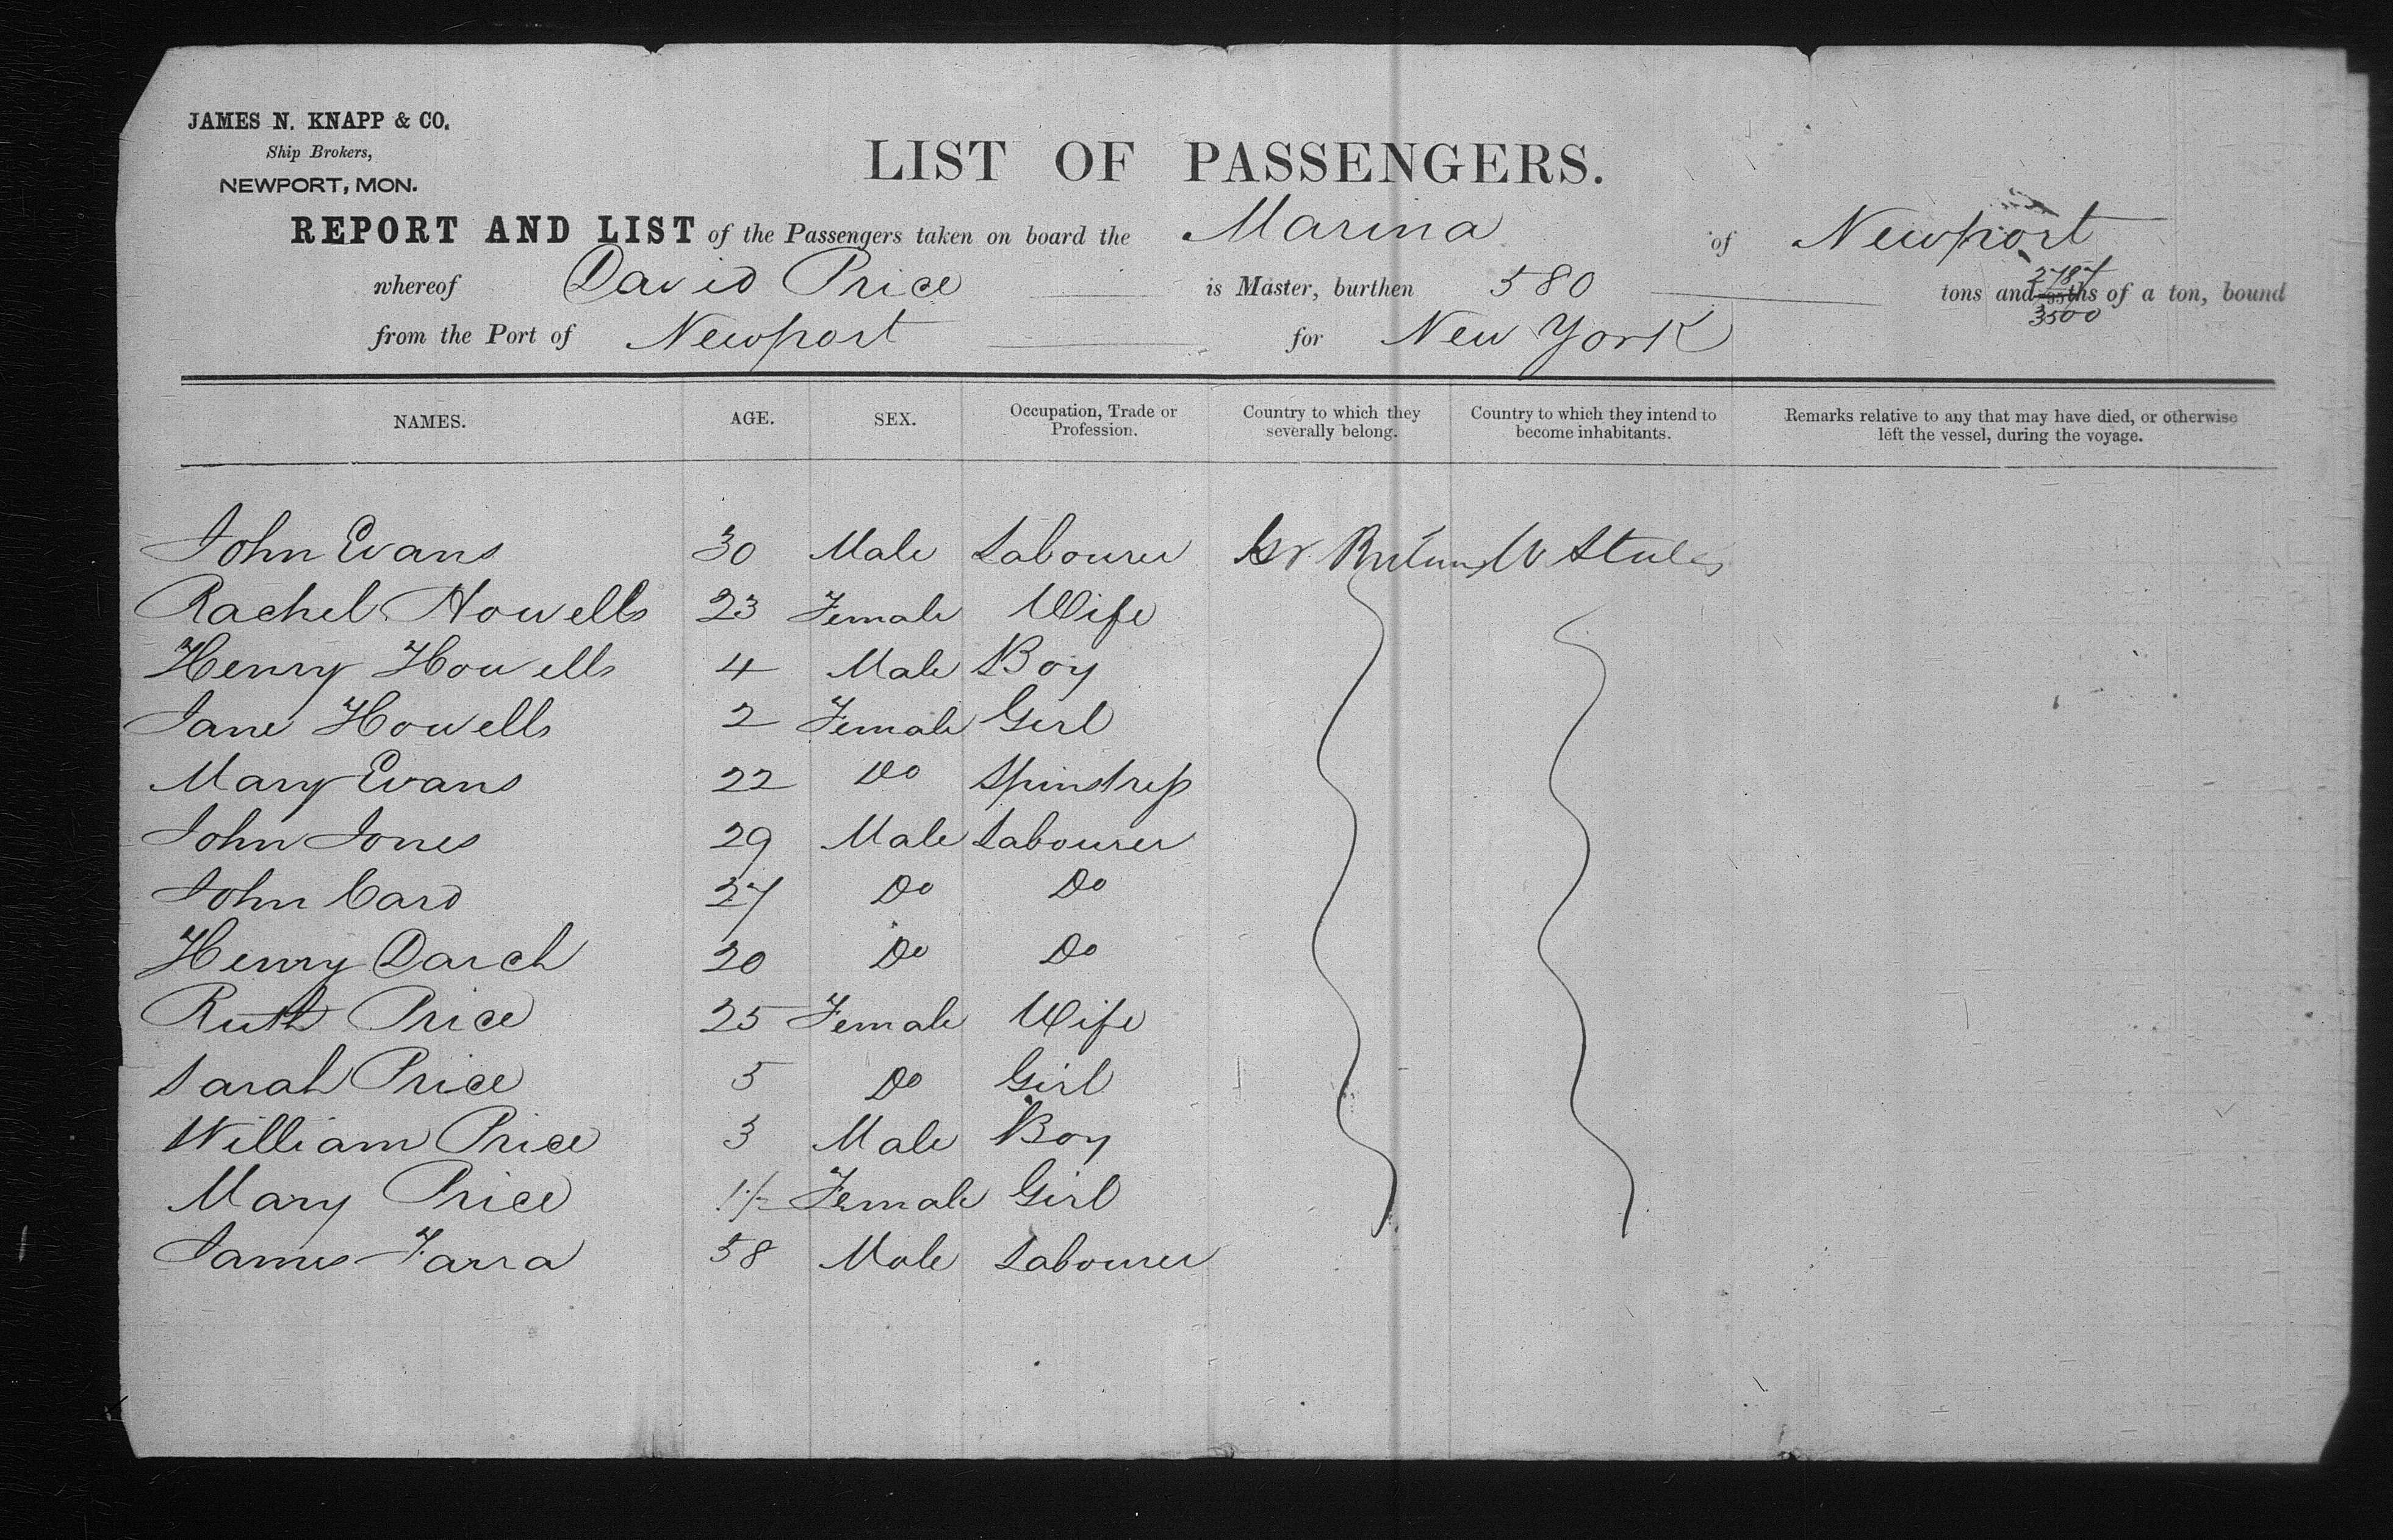 JAMES N. KNAPP & CO.
Ship Brokers,
NEWPORT, MON.
LIST OF PASSENGERS.
REPORT AND LIST of the Passengers taken on board the Marina of Newport
whereof David Price is Master, burthen 580 tons and 2787/3500 ths of a ton, bound
from the Port of Newport for New York
NAMES. AGE. SEX. Occupation, Trade or Profession. Country to which they severally belong. Country to which they intend to become inhabitants. Remarks relative to any that may have died, or otherwise left the vessel, during the voyage.
John Evans 30 Male Labourer Gr. Britain U States
Rachel Howells 23 Female Wife
Henry Howells 4 Male Boy
Jane Howells 2 Female Girl
Mary Evans 22 Do Spinstress
John Jones 29 Male Labourer
John Card 27 Do Do
Henry Darch 20 Do Do
Ruth Price 25 Female Wife
Sarah Price 5 Do Girl
William Price 3 Male Boy
Mary Price Female Girl
James Farra 58 Male Labourer